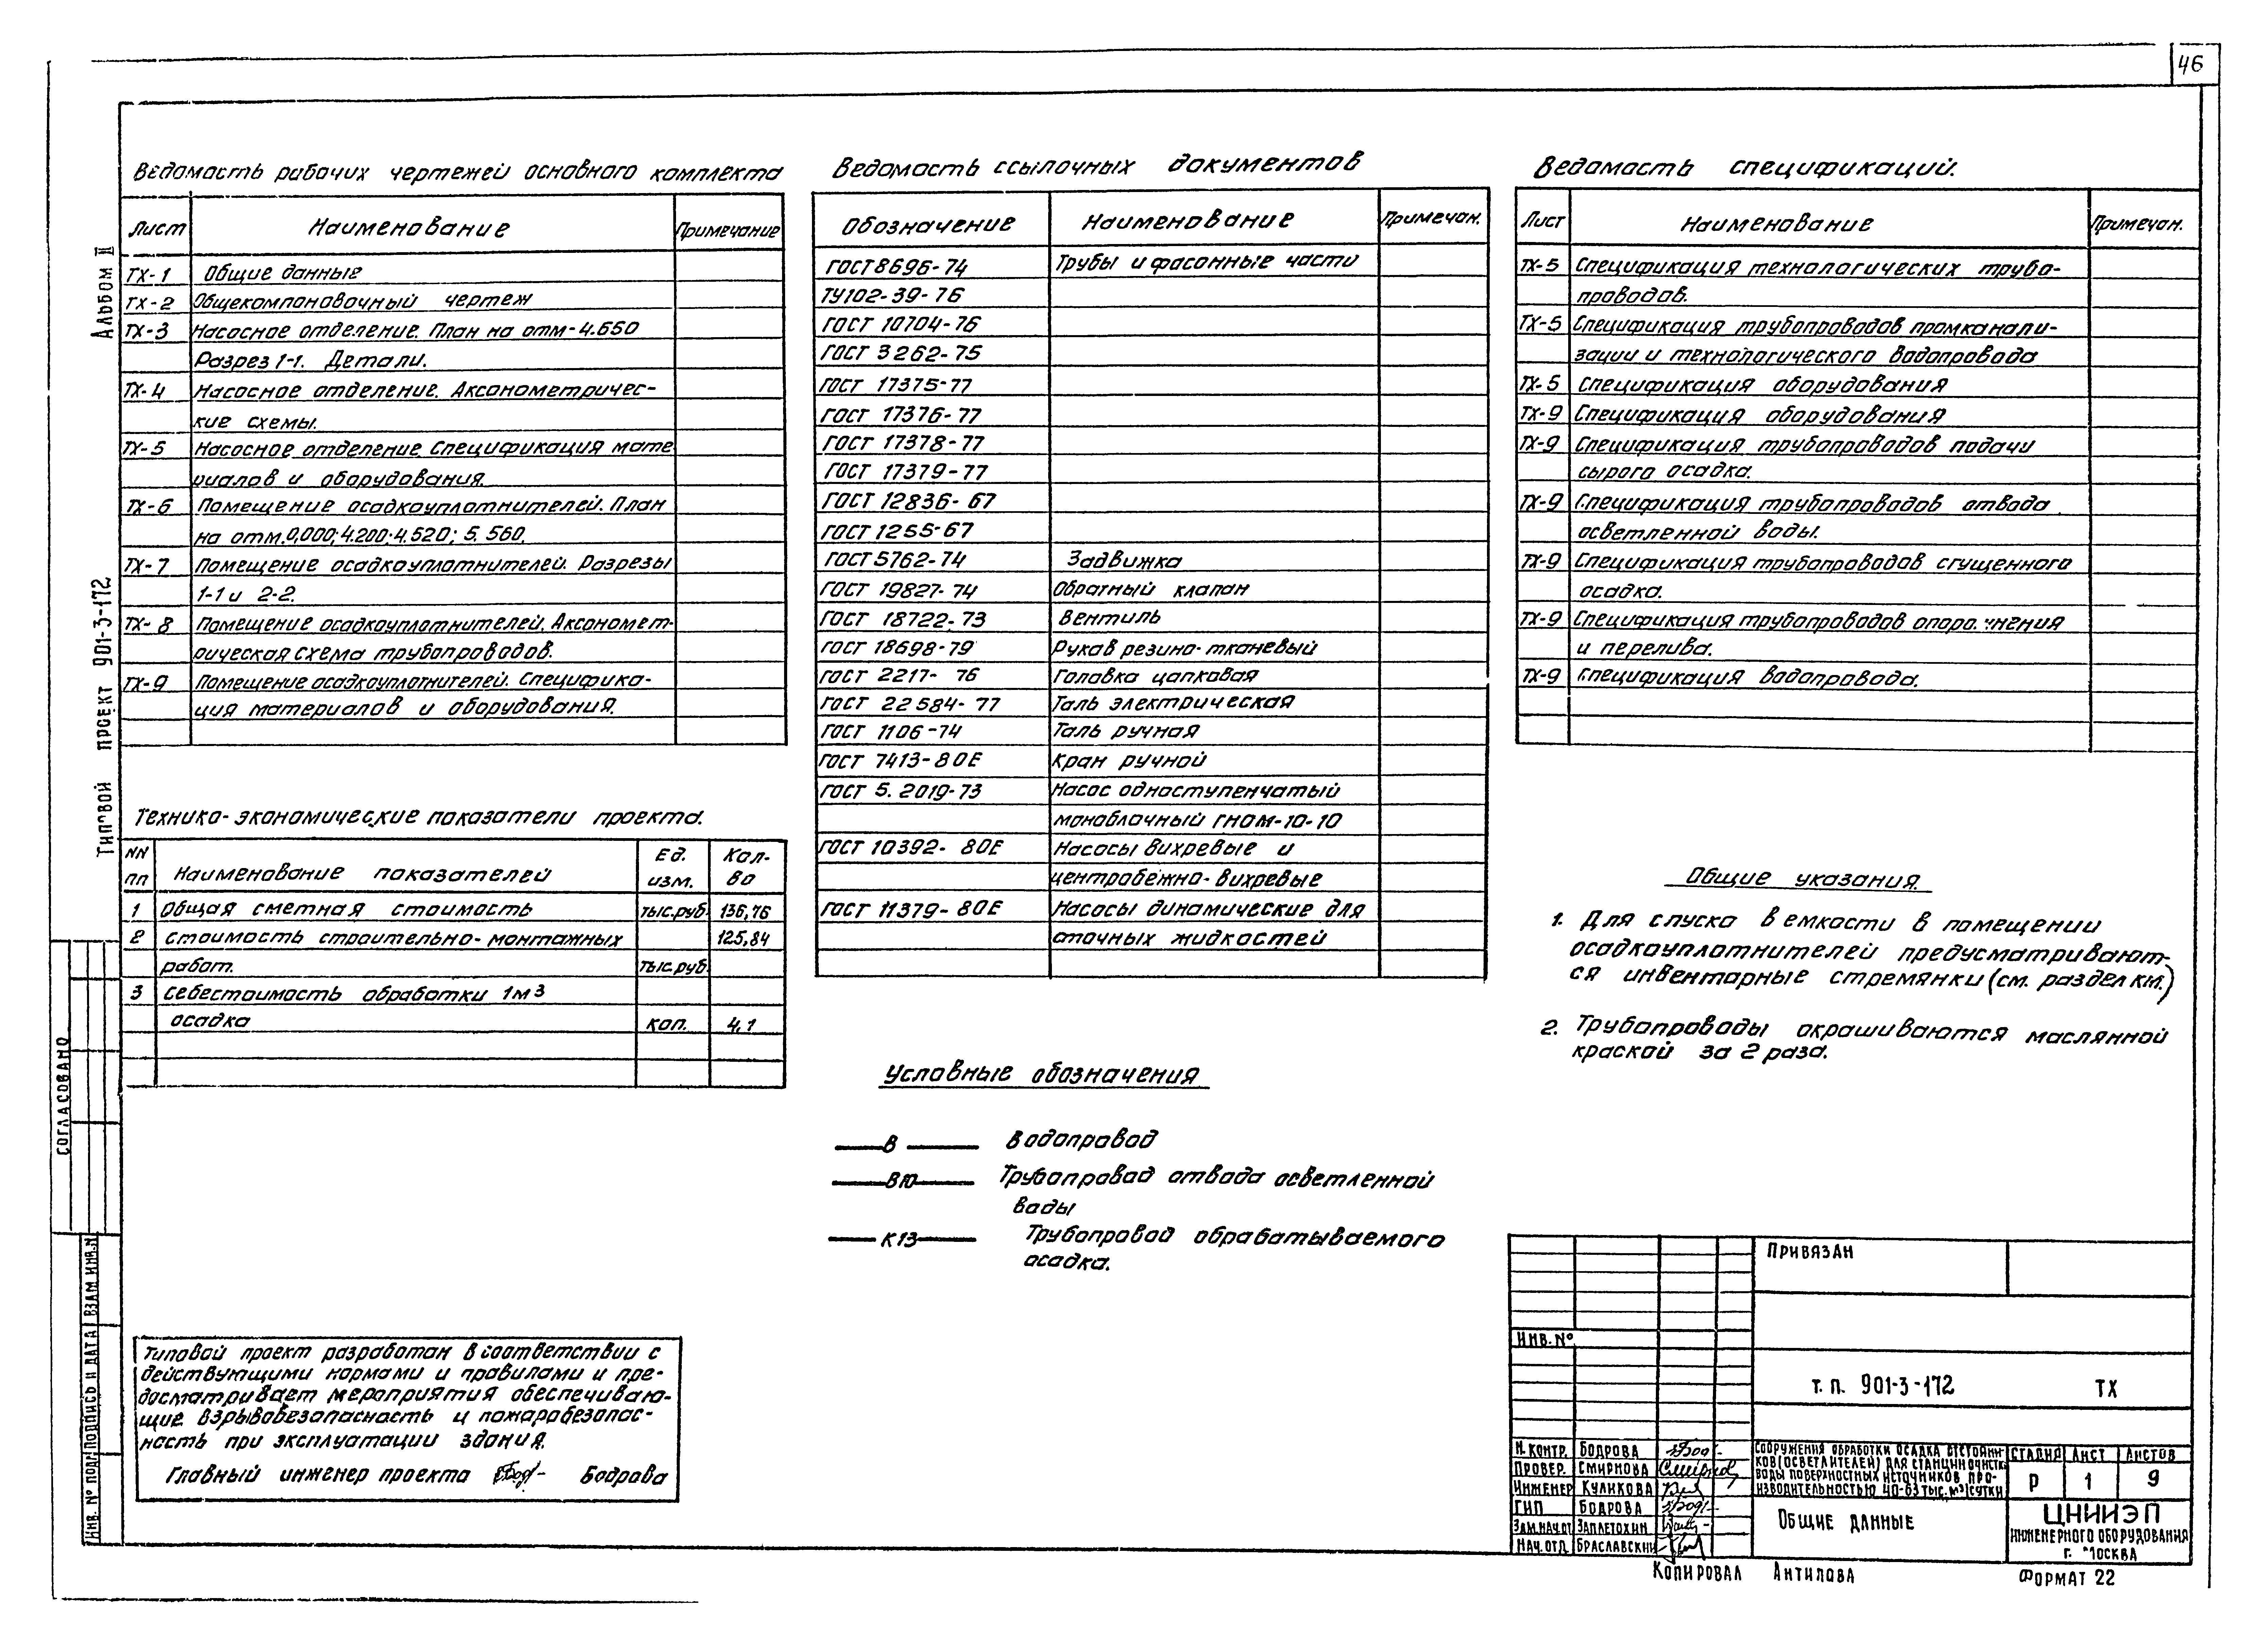 46
Альбом II
Типовой проект 901-3-172
СОГЛАСОВАНО
ИНВ. № ПОДЛ. ПОДПИСЬ И ДАТА ВЗАМ ИНВ. N
Ведомость рабочих чертежей основного комплекта
Лист Наименование Примечание
ТХ-1 Общие данные
ТХ-2 Общекомпоновочный чертеж
ТХ-3 Насосное отделение. План на отм-4.650
Разрез 1-1. Детали.
ТХ-4 Насосное отделение. Аксонометричес-
кие схемы.
ТХ-5 Насосное отделение Спецификация мате
риалов и оборудования.
ТХ-6 Помещение осадкоуплотнителей. План
на отм.0,000; 4.200; 4.520; 5.560.
ТХ-7 Помещение осадкоуплотнителей. Разрезы
1-1 и 2-2.
ТХ-8 Помещение осадкоуплотнителей. Аксономет-
рическая схема трубопроводов.
ТХ-9 Помещение осадкоуплотнителей. Специфика-
ция материалов и оборудования.
Технико-экономические показатели проекта.
NN пп Наименование показателей Ед. изм. Кол-во
1 Общая сметная стоимость тыс.руб. 136,76
2 Стоимость строительно-монтажных 125,84
работ. тыс.руб.
3 Себестоимость обработки 1м3
осадка коп. 4,1
Типовой проект разработан в соответствии с
действующими нормами и правилами и пре-
досматривает мероприятия обеспечиваю-
щие взрывобезопасность и пожаробезопас-
ность при эксплуатации здания.
Главный инженер проекта Бодрова
Ведомость ссылочных документов
Обозначение Наименование Примечан.
ГОСТ 8696-74 Трубы и фасонные части
ТУ102-39-76
ГОСТ 10704-76
ГОСТ 3262-75
ГОСТ 17375-77
ГОСТ 17376-77
ГОСТ 17378-77
ГОСТ 17379-77
ГОСТ 12836-67
ГОСТ 1255-67
ГОСТ 5762-74 Задвижка
ГОСТ 19827-74 Обратный клапан
ГОСТ 18722-73 Вентиль
ГОСТ 18698-79 Рукав резино-тканевый
ГОСТ 2217-76 Головка цапковая
ГОСТ 22584-77 Таль электрическая
ГОСТ 1106-74 Таль ручная
ГОСТ 7413-80Е Кран ручной
ГОСТ 5.2019-73 Насос одноступенчатый
моноблочный ГНОМ-10-10
ГОСТ 10392-80Е Насосы вихревые и
центробежно-вихревые
ГОСТ 11379-80Е Насосы динамические для
сточных жидкостей
Условные обозначения
В Водопровод
В10 Трубопровод отвода осветленной
воды
К13 Трубопровод обрабатываемого
осадка.
Ведомость спецификаций.
Лист Наименование Примечан.
ТХ-5 Спецификация технологических трубо-
проводов.
ТХ-5 Спецификация трубопроводов промканали-
зации и технологического водопровода
ТХ-5 Спецификация оборудования
ТХ-9 Спецификация оборудования
ТХ-9 Спецификация трубопроводов подачи
сырого осадка.
ТХ-9 Спецификация трубопроводов отвода
осветленной воды.
ТХ-9 Спецификация трубопроводов сгущенного
осадка.
ТХ-9 Спецификация трубопроводов
и перелива.
ТХ-9 Спецификация водопровода.
Общие указания.
1. Для спуска в емкости в помещении
осадкоуплотнителей предусматривают-
ся инвентарные стремянки (см. раздел КМ.)
2. Трубопроводы окрашиваются маслянной
краской за 2 раза.
ПРИВЯЗАН
ИНВ. №
т. п. 901-3-172 ТХ
Н. КОНТР. БОДРОВА
ПРОВЕР. СМИРНОВА
ИНЖЕНЕР КУЛИКОВА
ГИП БОДРОВА
ЗАМ.НАЧ.ОТ ЗАПЛЕТОХИН
НАЧ. ОТД БРАСЛАВСКИЙ
СООРУЖЕНИЯ ОБРАБОТКИ ОСАДКА ОТСТОЙНИ-
КОВ (ОСВЕТЛИТЕЛЕЙ) ДЛЯ СТАНЦИИ ОЧИСТК.
ВОДЫ ПОВЕРХНОСТНЫХ ИСТОЧНИКОВ ПРО-
ИЗВОДИТЕЛЬНОСТЬЮ 40-63 ТЫС. М3/СУТКИ
СТАДИЯ ЛИСТ ЛИСТОВ
Р 1 9
ОБЩИЕ ДАННЫЕ
ЦНИИЭП
ИНЖЕНЕРНОГО ОБОРУДОВАНИЯ
г. МОСКВА
КОПИРОВАЛ АНТИПОВА ФОРМАТ 22